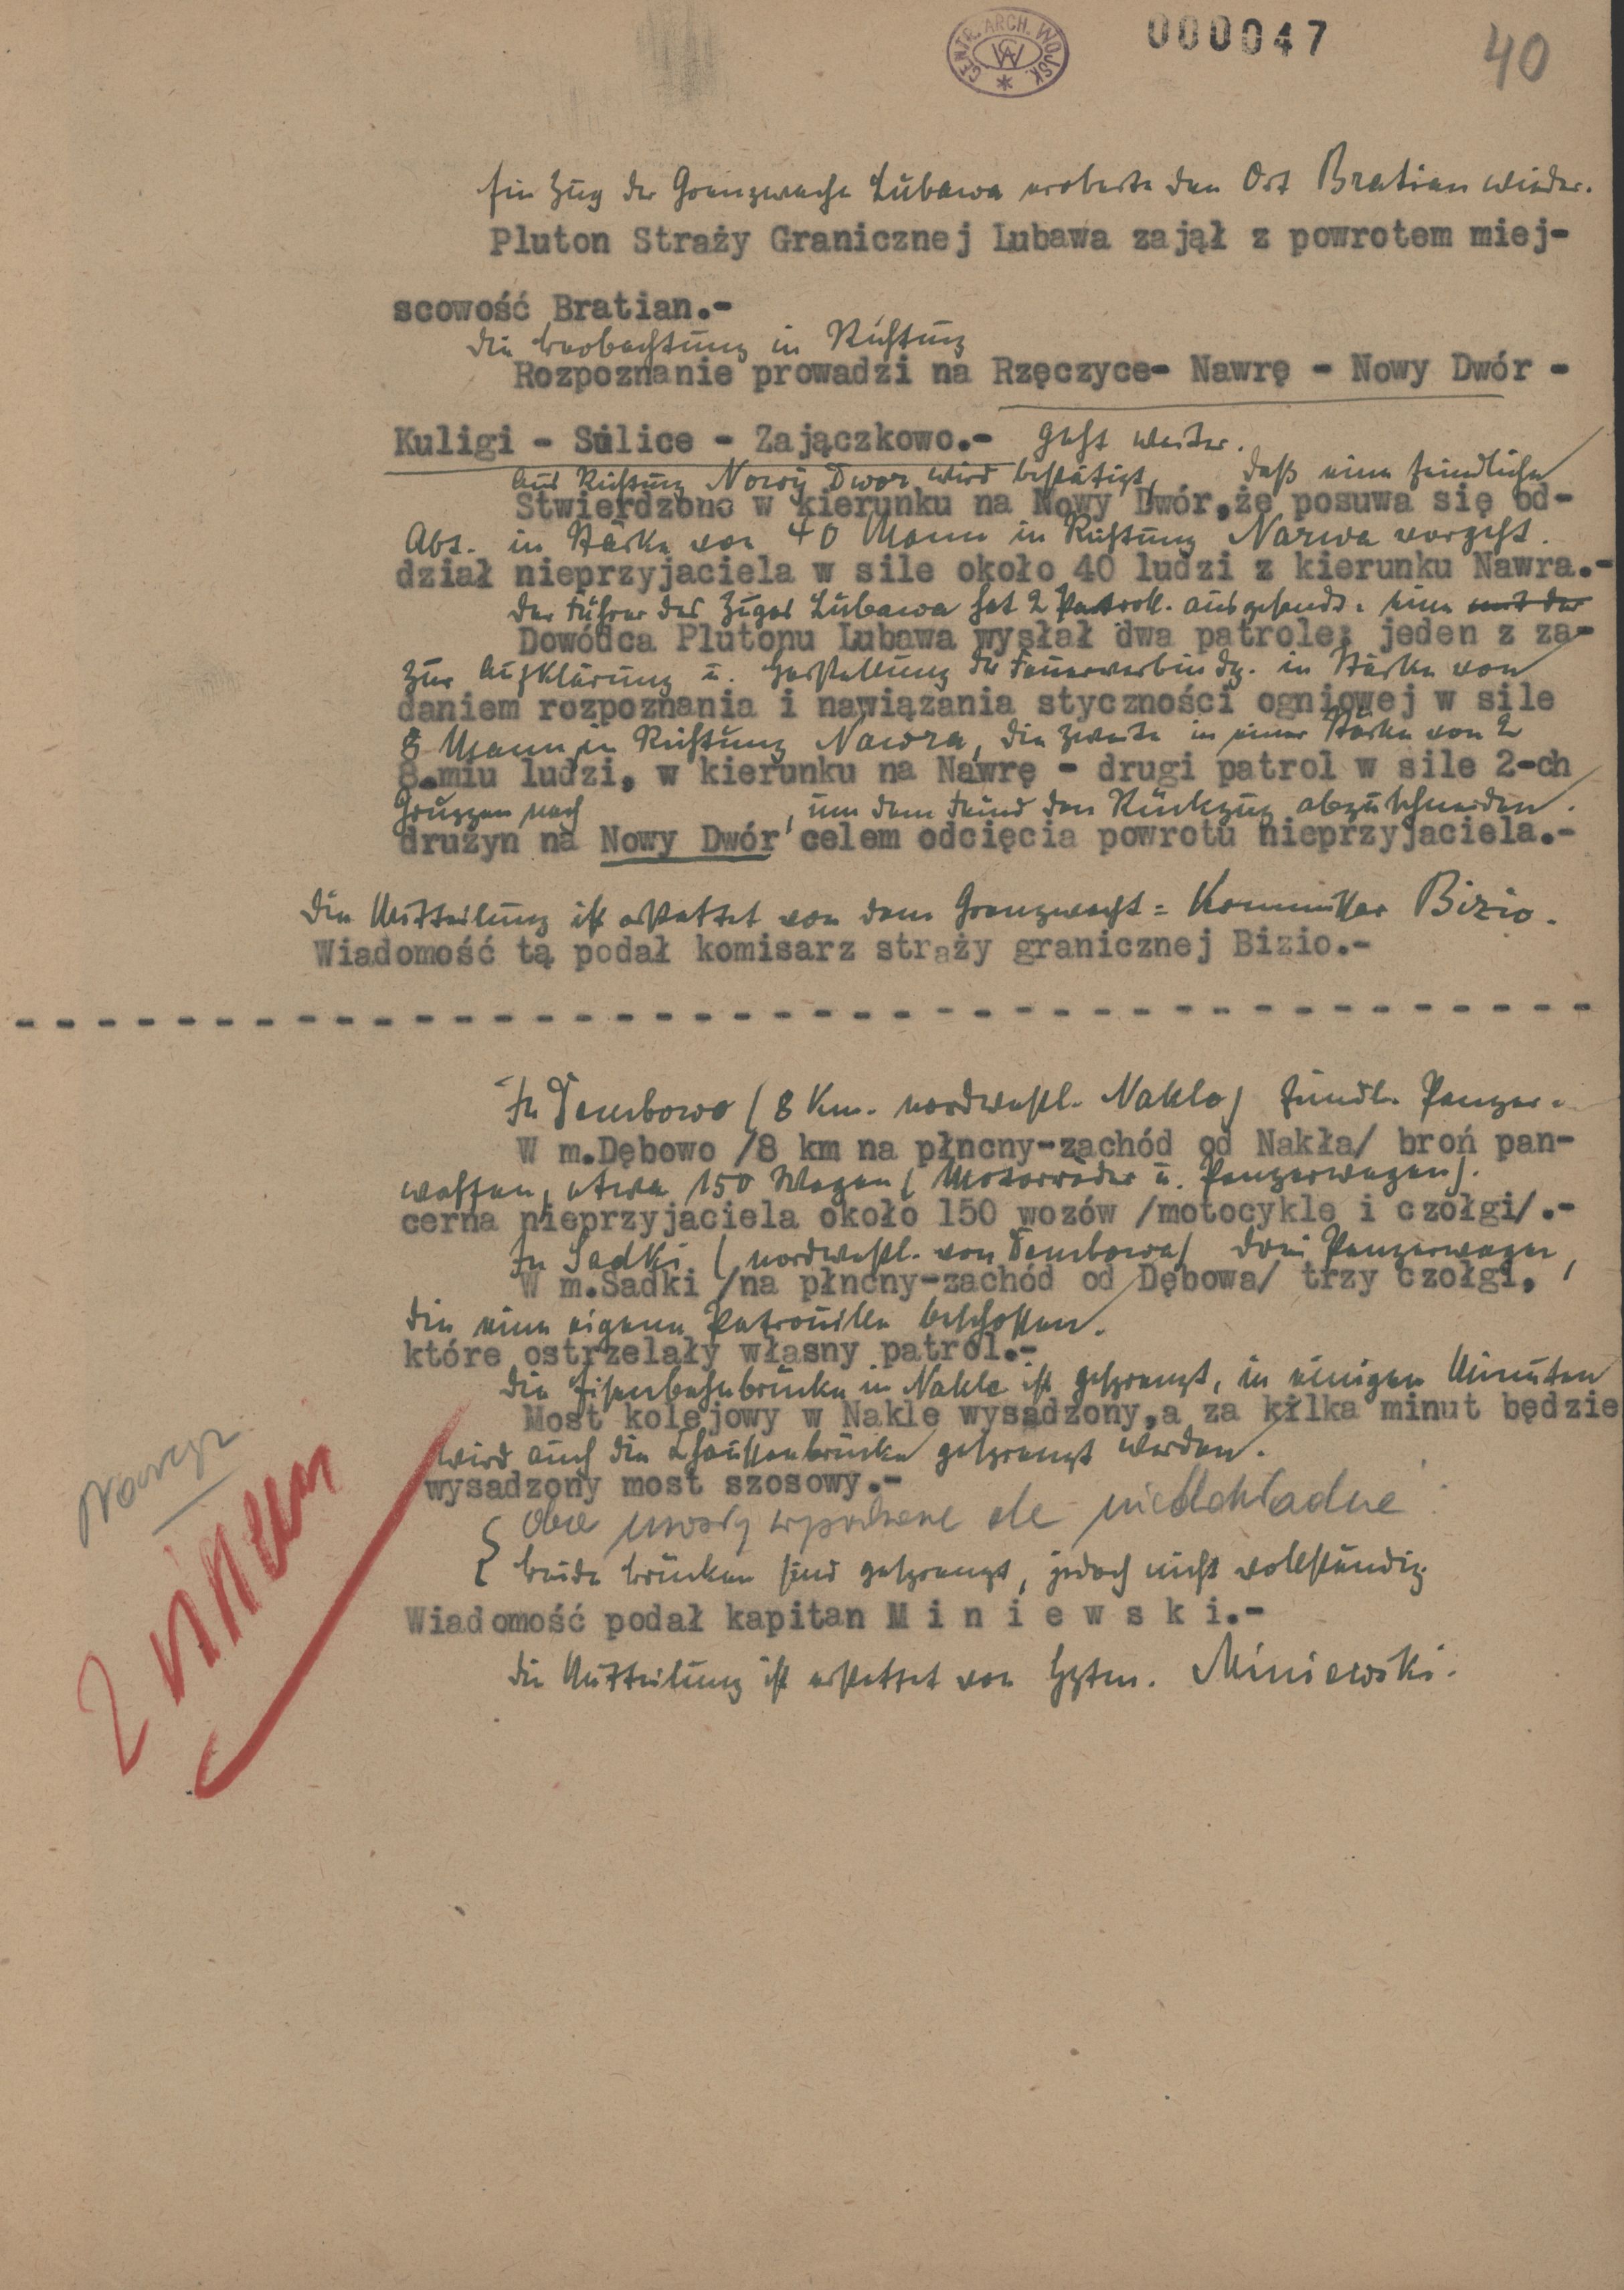 CENTR. ARCH. WOJSK.
000047
40
Ein Zug der Grenzwache Lubawa eroberte den Ort Bratian wieder.
Pluton Straży Granicznej Lubawa zajął z powrotem miej-
scowość Bratian.-
Die Beobachtung in Richtung
Rozpoznanie prowadzi na Rzęczyce- Nawrę - Nowy Dwór -
Kuligi - Sulice - Zajączkowo.- geht weiter.
Aus Richtung Nowy Dwor wird bestätigt, daß eine feindliche
Stwierdzono w kierunku na Nowy Dwór,że posuwa się od-
Abt. in Stärke von 40 Mann in Richtung Narwa vorgeht.
dział nieprzyjaciela w sile około 40 ludzi z kierunku Nawra.-
Der Führer des Zuges Lubawa hat 2 Patroll. ausgesandt: eine mit der
Dowódca Plutonu Lubawa wysłał dwa patrole: jeden z za-
zur Aufklärung u. Herstellung der Feuerverbindg. in Stärke von
daniem rozpoznania i nawiązania styczności ogniowej w sile
8 Mann in Richtung Nawra, die zweite in einer Stärke von 2
8.miu ludzi, w kierunku na Nawrę - drugi patrol w sile 2-ch
Gruppen nach , um dem Feind den Rückzug abzuschneiden.
drużyn na Nowy Dwór celem odcięcia powrotu nieprzyjaciela.-
Die Mitteilung ist erstattet von dem Grenzwacht=Kommissar Bizio.
Wiadomość tą podał komisarz straży granicznej Bizio.-
- - - - - - - - - - - - - - - - - - - - - - - - - - - - - - - - - - -
In Dembowo (8 Km. nordwestl. Naklo) feindl. Panzer-
W m.Dębowo /8 km na płncny-zachód od Nakła/ broń pan-
waffen, etwa 150 Wagen (Motorräder u. Panzerwagen).
cerna nieprzyjaciela około 150 wozów /motocykle i czołgi/.-
In Sadki (nordwestl. von Dembowa) drei Panzerwagen,
W m.Sadki /na płncny-zachód od Dębowa/ trzy czołgi,
die eine eigene Patrouille beschossen.
które ostrzelały własny patrol.-
Die Eisenbahnbrücke in Nakle ist gesprengt, in einigen Minuten
Most kolejowy w Nakle wysadzony,a za kilka minut będzie
wird auch die Chausseebrücke gesprengt werden.
wysadzony most szosowy.-
obie mosty ale niedokładnie
beide Brücken sind gesprengt, jedoch nicht vollständig
Wiadomość podał kapitan M i n i e w s k i.-
Die Mitteilung ist erstattet von Hptm. Miniewski.